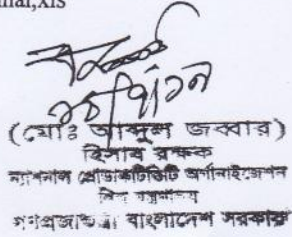 nal,xls
(মোঃ আব্দুল জব্বার)
হিসাব রক্ষক
ন্যাশনাল প্রোডাকটিভিটি অর্গানাইজেশন
শিল্প মন্ত্রণালয়
গণপ্রজাতন্ত্রী বাংলাদেশ সরকার